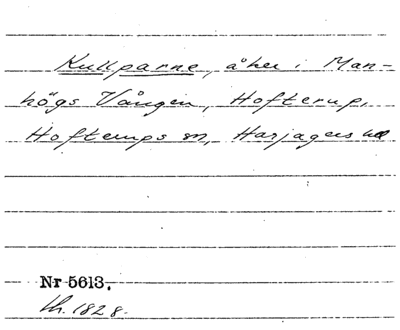 Kullparne, åker i Man-
högs Vången, Hofterup,
Hofterups sn, Harjagers hd
Nr 5613.
th. 1828.